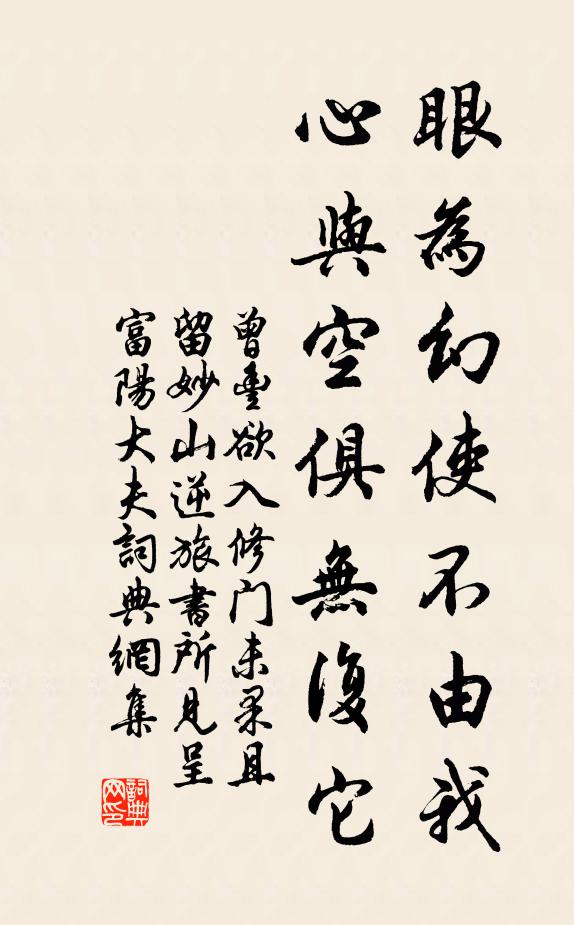 眼為幻使不由我
心與空俱無復它
曾豐欲入修门未果且
留妙山逆旅書所見呈
富陽大夫詞典網集
詞典网印